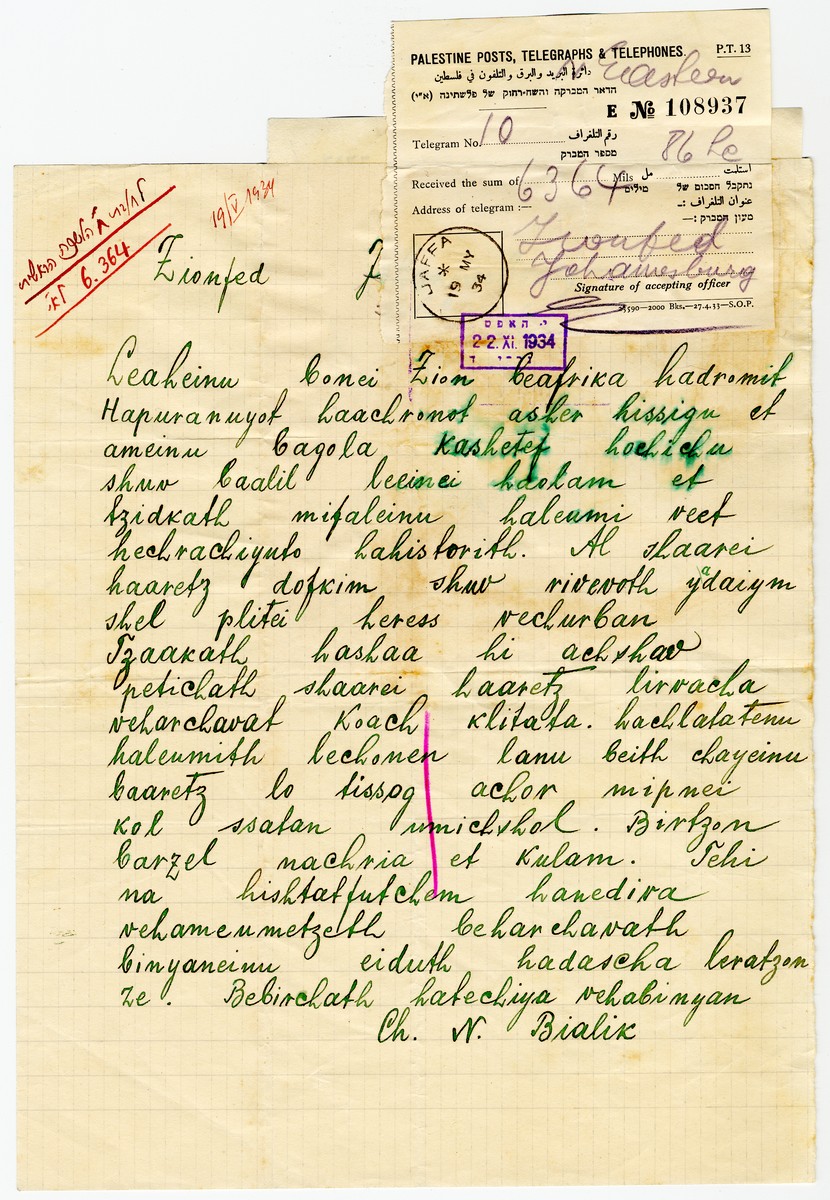 PALESTINE POSTS, TELEGRAPHS & TELEPHONES. P.T. 13
دائرة البريد والبرق والتلفون في فلسطين
Eastern
הדאר המברקה והשח-רחוק של פלשתינה (א״י)
E № 108937
Telegram No. 10 رقم التلغراف
מספר המברק
86 Lc
Received the sum of 6364 Mils مل استلمت
מילים נתקבל הסכום של
Address of telegram :— عنوان التلغراف :ـ
מעון המברק:—
Zionfed
Johannesburg
Signature of accepting officer
590—2000 Bks.—27.4.33—S.O.P.
JAFFA
19 MY
34
22. XI. 1934
19/V 1934
6.364 לא״י
Zionfed J
Leaheinu bonei Zion beafrika hadromit
Hapuranuyot haachronot asher hissigu et
ameinu bagola kashetef hochichu
shuv baalil leeinei haolam et
tzidkath mifaleinu haleumi veet
hechrachiyuto hahistorith. Al shaarei
haaretz dofkim shuv rivevoth ydaiym
shel plitei heress vechurban
Tzaakath hashaa hi achshav
petichath shaarei haaretz lirwacha
veharchavat koach klitata. hachlatatenu
haleumith lechonen lanu beith chayeinu
baaretz lo tissog achor mipnei
kol ssatan umichshol. Birtzon
barzel nachria et kulam. Tehi
na hishtatfutchem hanediva
vehameumetzeth beharchavath
binyaneinu eiduth hadascha leratzon
ze. Bebirchath hatechiya vehabinyan
Ch. N. Bialik